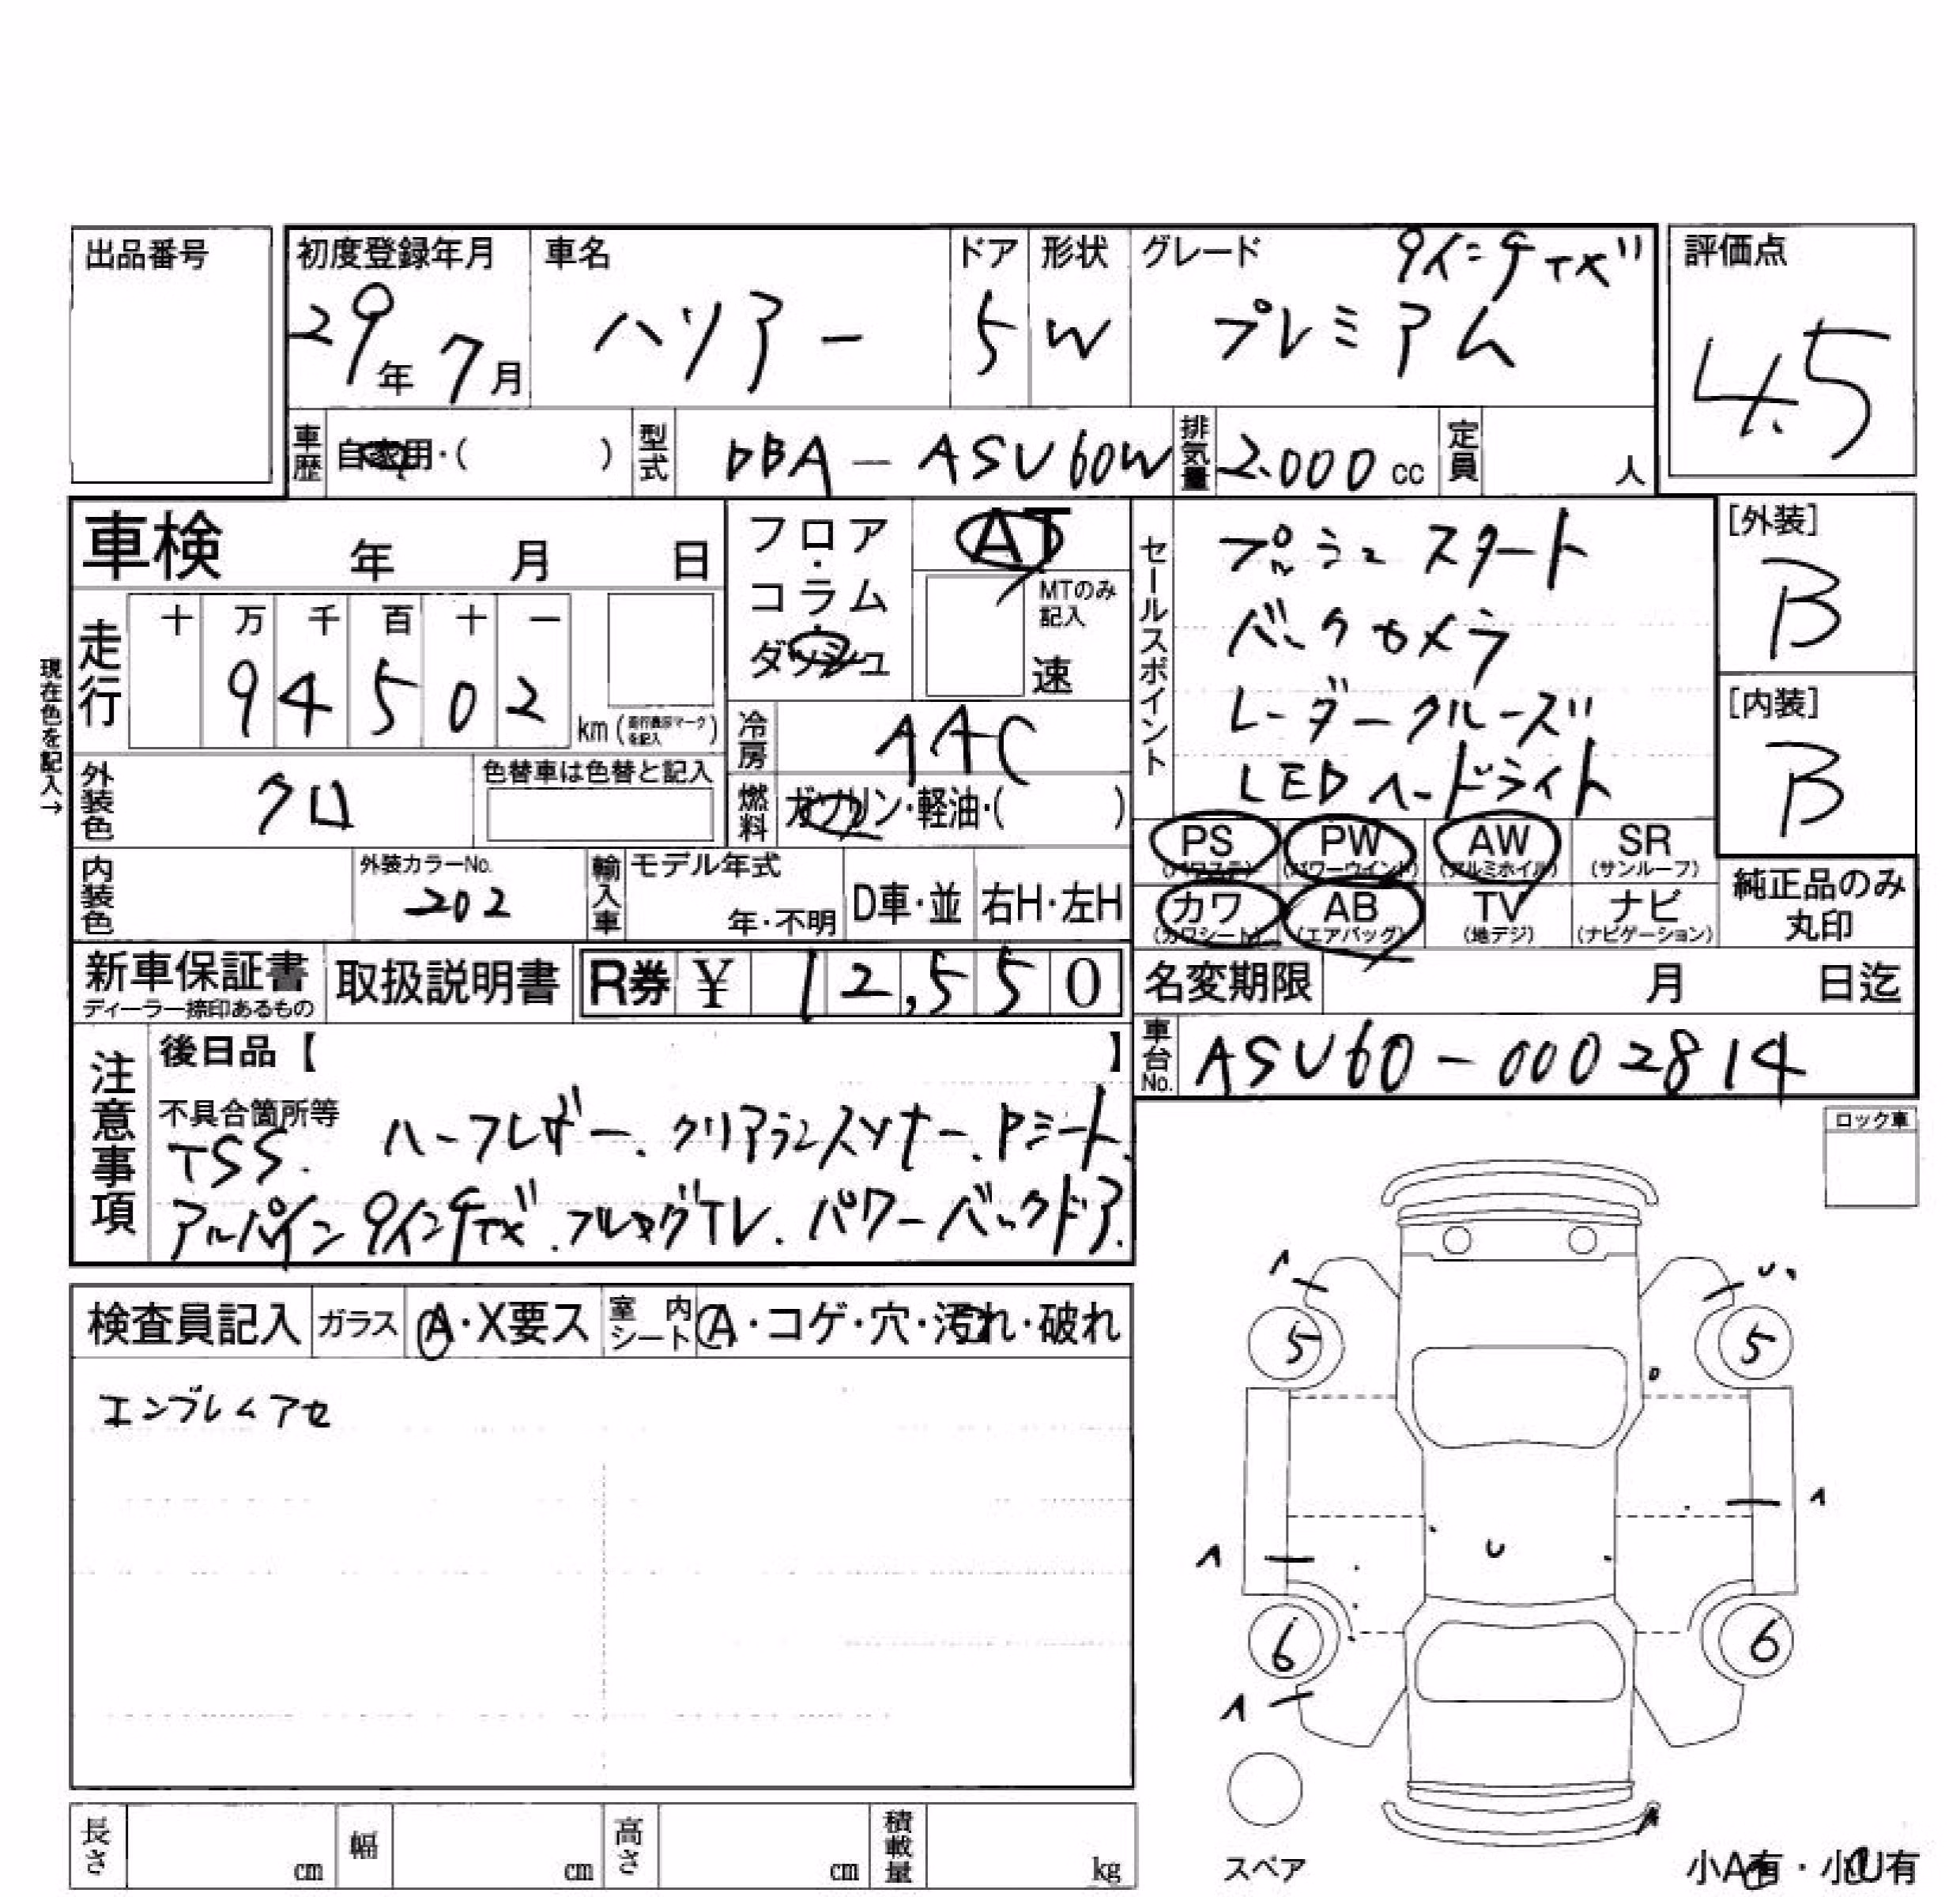 出品番号
初度登録年月 29年 7月
車名 ハリアー
ドア 5
形状 W
グレード 9インチTXV
プレミアム
評価点 4.5
車歴 自家用・( )
型式 DBA-ASU60W
排気量 2.000cc
定員 人
車検 年 月 日
フロア・コラム・ダッシュ
AT
MTのみ記入
速
走行 十 万 千 百 十 一
94502
km(走行表示マークを記入)
現在色を記入→
冷房 AAC
燃料 ガソリン・軽油・( )
外装色 クロ
色替車は色替と記入
内装色
外装カラーNo. 202
輸入車 モデル年式 年・不明
D車・並
右H・左H
セールスポイント
プッシュスタート
バックカメラ
レーダークルーズ
LEDヘードライト
[外装] B
[内装] B
PS (パワステ)
PW (パワーウインド)
AW (アルミホイル)
SR (サンルーフ)
カワ (カワシート)
AB (エアバッグ)
TV (地デジ)
ナビ (ナビゲーション)
純正品のみ丸印
新車保証書 ディーラー捺印あるもの
取扱説明書
R券 ¥ 12,550
名変期限 月 日迄
車台No. ASU60-0002814
注意事項
後日品【 】
不具合箇所等
TSS. ハーフレザー、クリアランスソナー、Pシート.
アルパイン9インチ フルセグTV. パワーバックドア.
ロック車
検査員記入
ガラス A・X要ス
室内シート A・コゲ・穴・汚れ・破れ
エンブレムアセ
A
U
5
5
A
U
A
6
6
A
A
スペア
小A有・小U有
長さ cm
幅 cm
高さ cm
積載量 kg